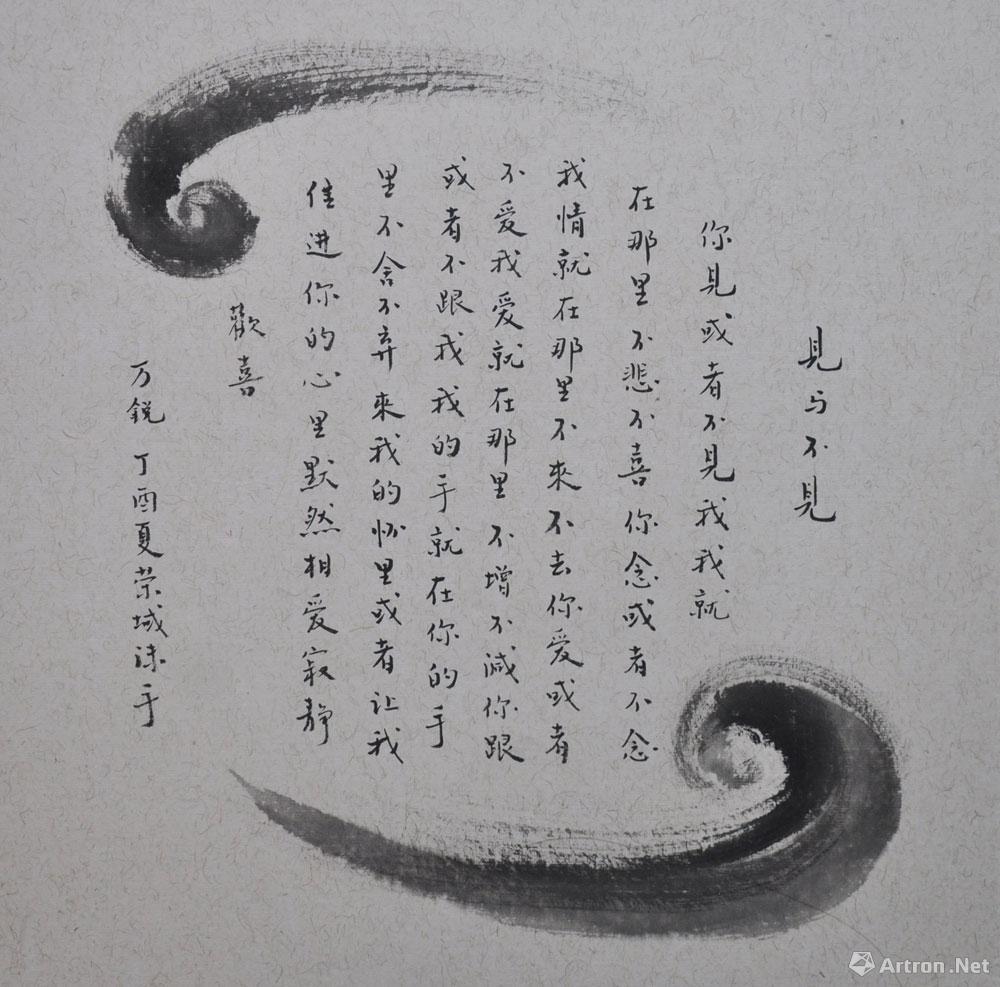 見与不見
你見或者不見我我就
在那里不悲不喜你念或者不念
我情就在那里不來不去你爱或者
不爱我爱就在那里不增不減你跟
或者不跟我我的手就在你的手
里不舍不弃來我的怀里或者让我
住进你的心里默然相爱寂静
歡喜
万鋭丁酉夏荣域沐手
Artron.Net